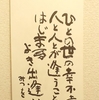 ひとの世の幸不幸は
人と人とが逢うことから
はじまる
よき出逢いを
みつを